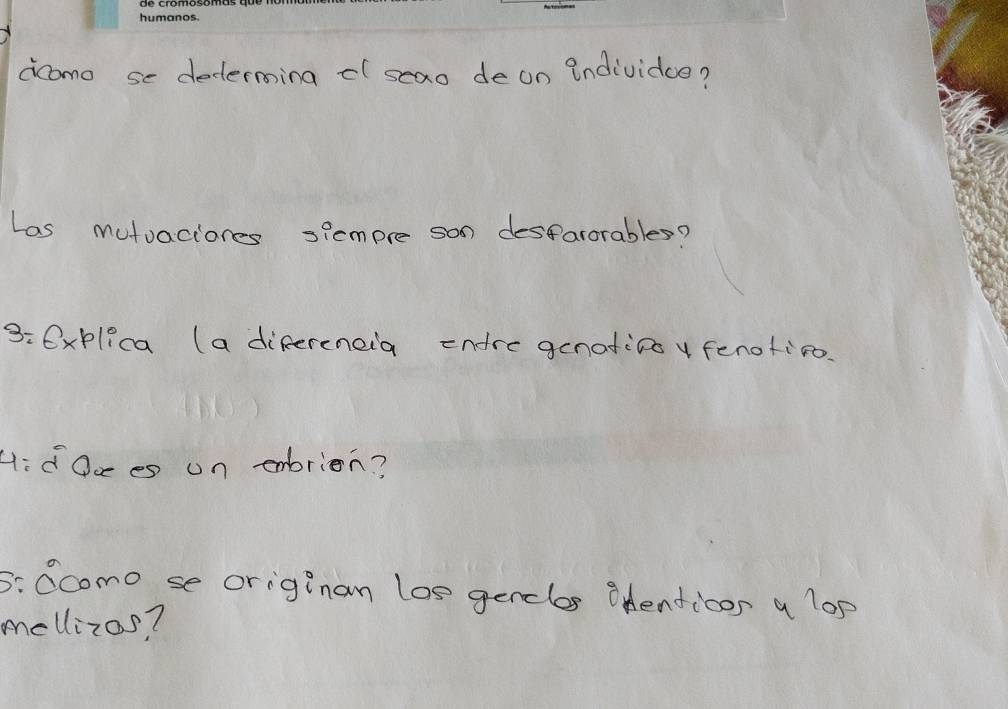 humanos.
¿como se dedermina el sexo de un individuo?
Las mutuaciones siempre son desfavorables?
3: Explica la diferencia entre genotipo y fenotipo.
4: ¿Que es un embrion?
5: ¿como se originan los gemelos identicos y los
mellizos?